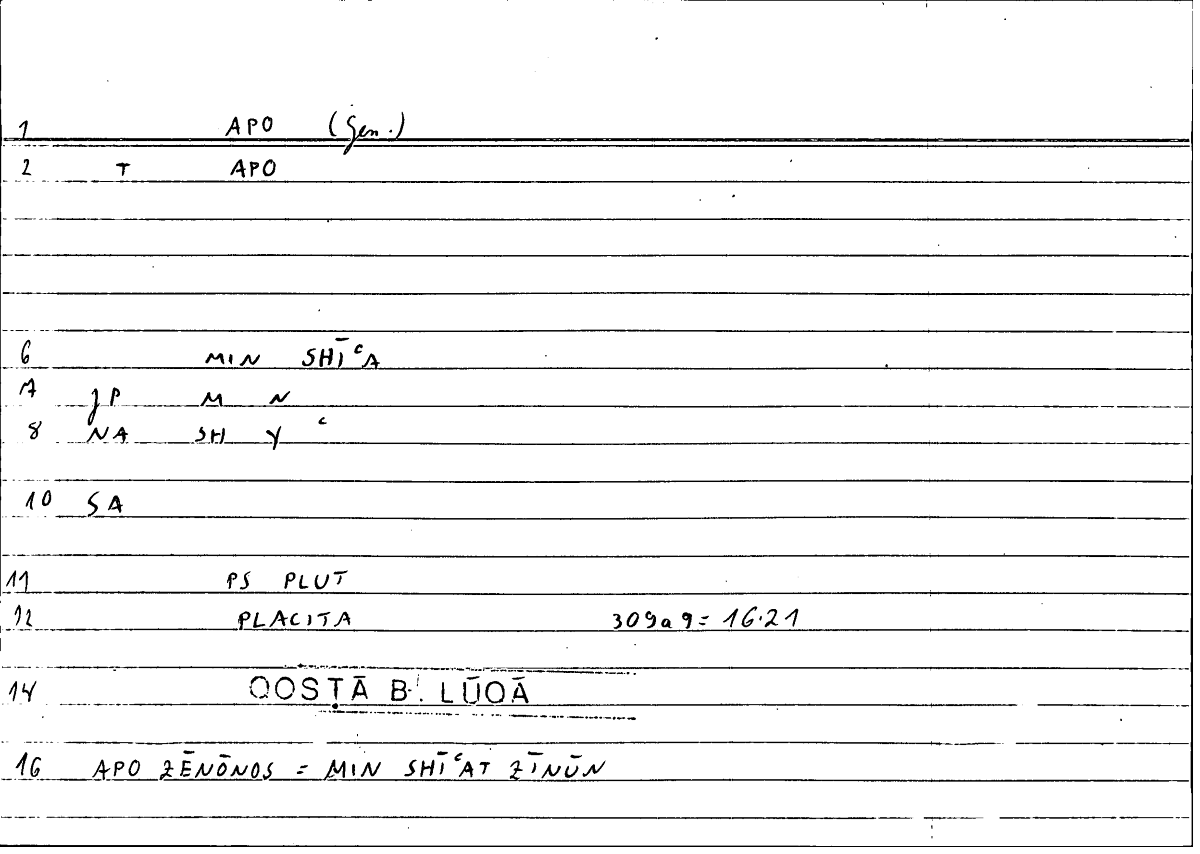 1 APO (Gen.)
2 T APO
6 MIN SHĪʿA
7 JP M N
8 NA SH Y ʿ
10 SA
11 PS PLUT
12 PLACITA 309a9= 16.21
14 QOSṬĀ B. LŪQĀ
16 APO ZĒNŌNOS = MIN SHĪʿAT ZĪNŪN